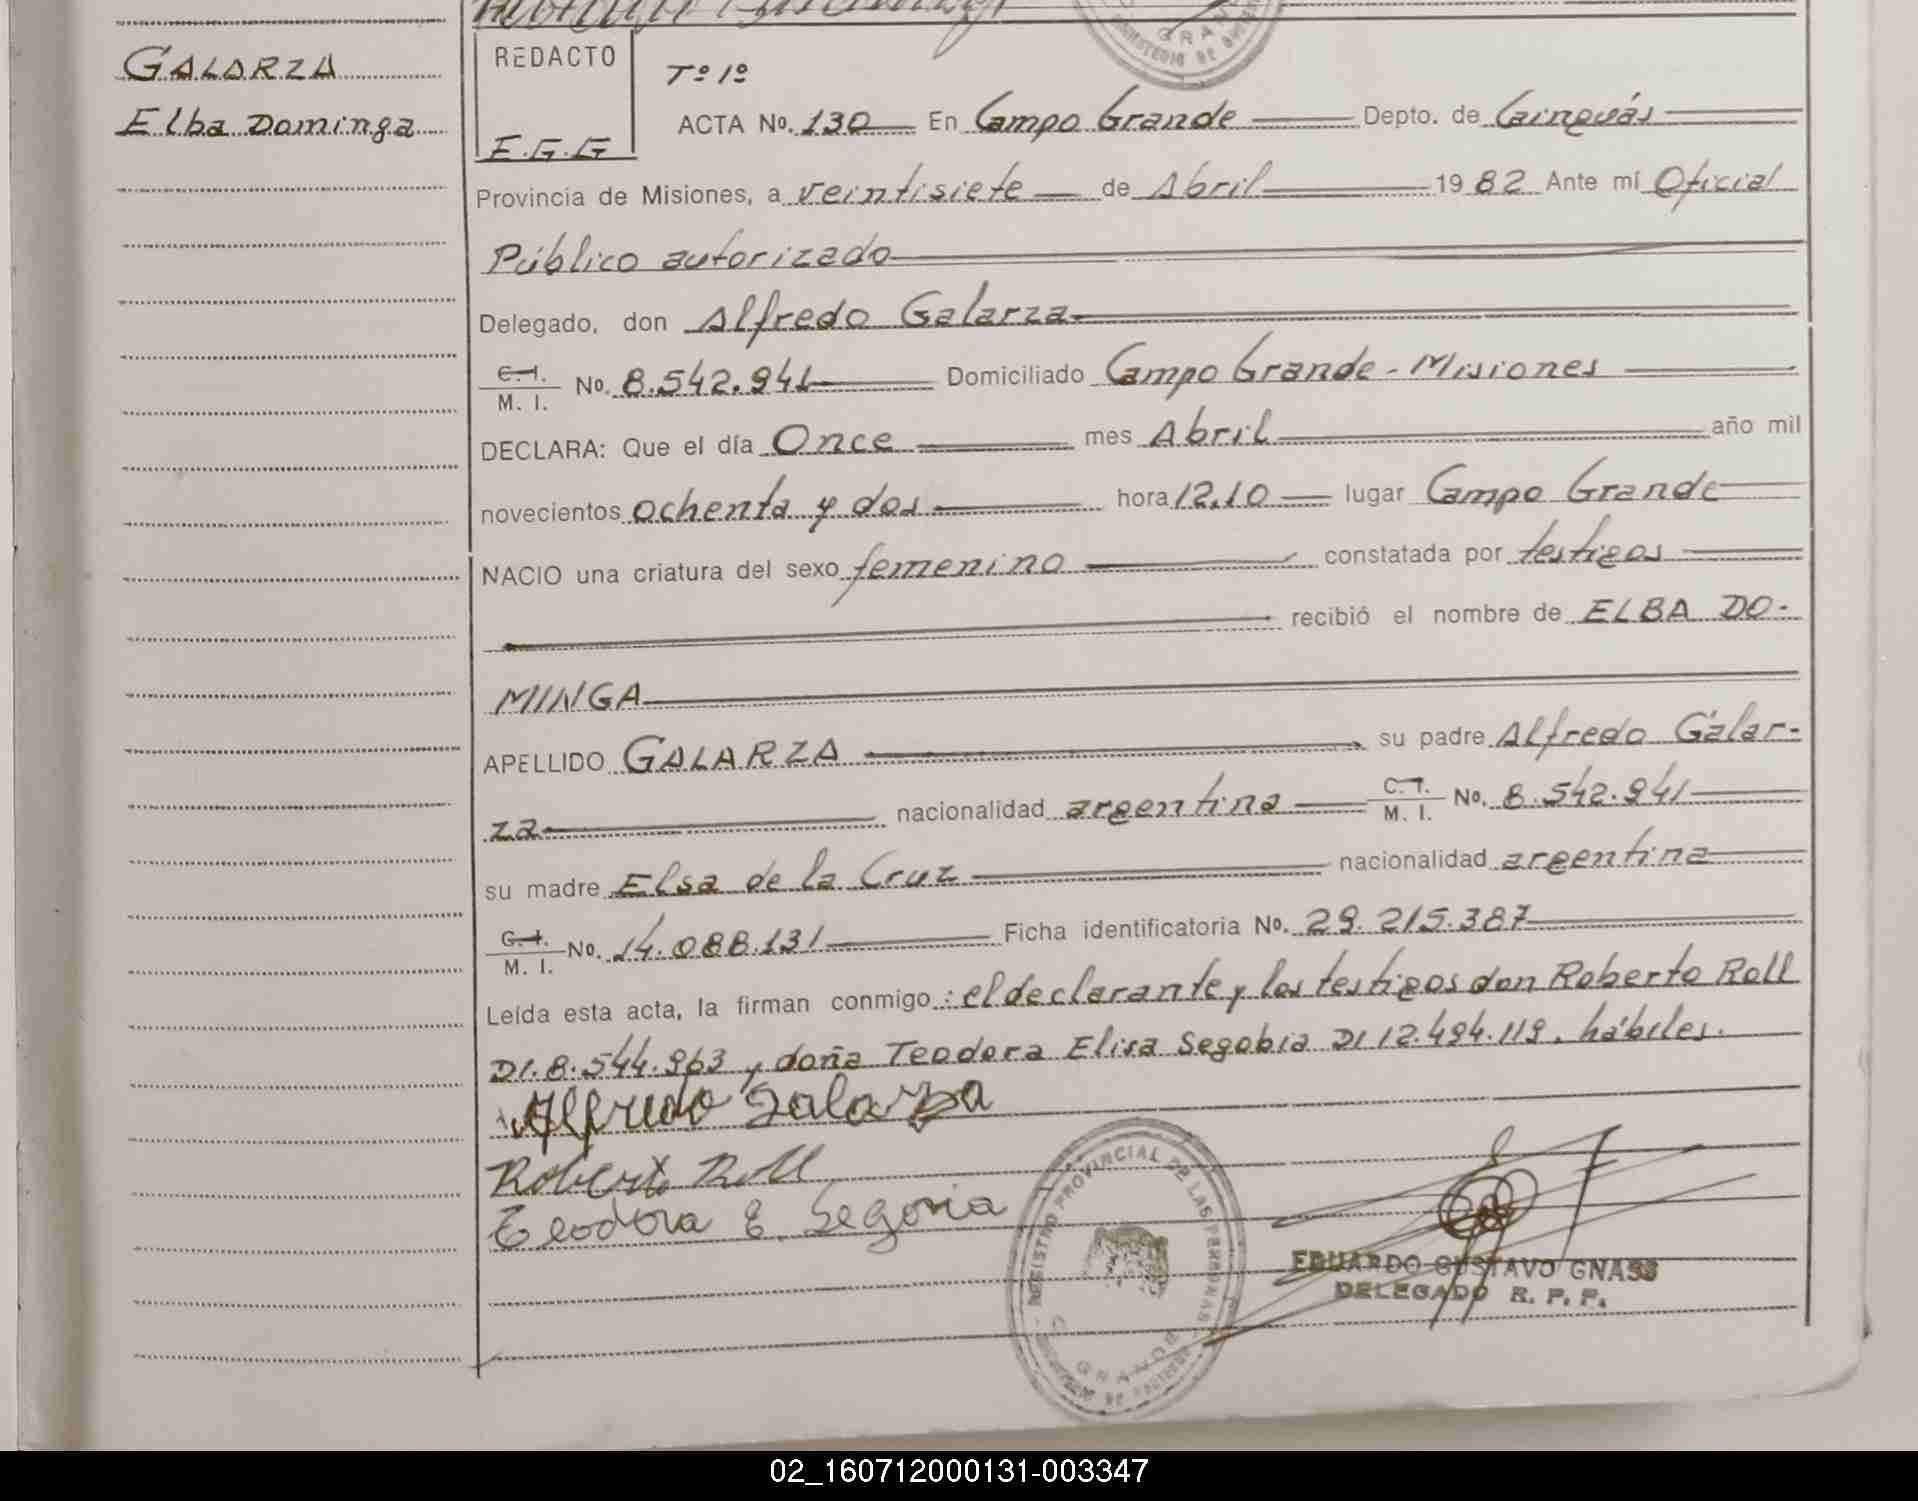 GALARZA
Elba Dominga
REDACTO
E.G.G
Tº 1º
ACTA No. 130 En Campo Grande Depto. de Cainguás
Provincia de Misiones, a veintisiete de Abril 1982 Ante mí Oficial
Público autorizado
Delegado, don Alfredo Galarza
C. I.
M. I. No. 8.542.941 Domiciliado Campo Grande - Misiones
DECLARA: Que el día Once mes Abril año mil
novecientos ochenta y dos hora 12,10 lugar Campo Grande
NACIO una criatura del sexo femenino constatada por testigos
recibió el nombre de ELBA DO-
MINGA
APELLIDO GALARZA su padre Alfredo Galar-
za nacionalidad argentina C. I. M. I. No. 8.542.941
su madre Elsa de la Cruz nacionalidad argentina
C. I.
M. I. No. 14.088.131 Ficha identificatoria No. 29.215.387
Leída esta acta, la firman conmigo: el declarante y los testigos don Roberto Roll
DI. 8.544.963 y doña Teodora Elisa Segobia DI 12.494.119, hábiles.
Alfredo Galarza
Roberto Roll
Teodora E. Segovia
REGISTRO PROVINCIAL DE LAS PERSONAS
EDUARDO GUSTAVO GNASS
DELEGADO R. P. P.
02_160712000131-003347